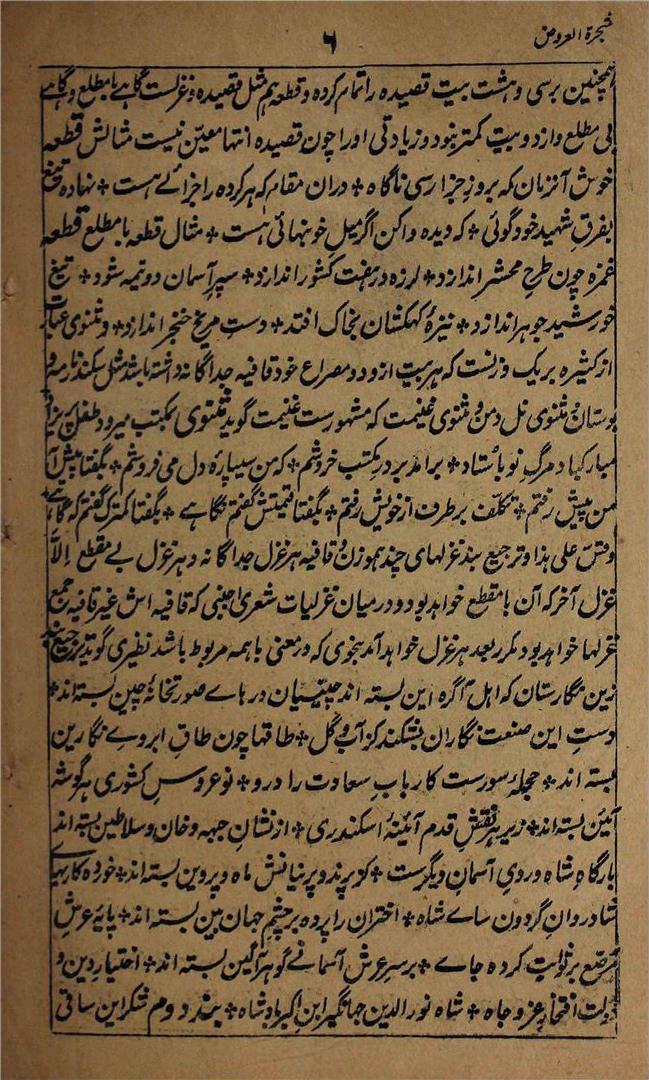 شجرة العروض
۶
همچنین برسی و هشت بیت قصیده را تمام کرده و قطعه هم مثل قصیده و غزلست گاهے با مطلع و گاهے
بی مطلع و از دو بیت کمتر نبود و زیادتی او را چون قصیده انتها معین نیست مثالش قطعه
خوش آنزمان که بروز جزا رسی ناگاه ٭ دران مقام که هر کرده را جزائے هست ٭ نهاده تیغ
بفرق شهید خود گوئی ٭ که دیده واکن اگر میل خونبهائی هست ٭ مثال قطعه با مطلع قطعه
غمزه چون طرح محشر اندازد ٭ لرزه در هفت کشور اندازد ٭ سپر آسمان دو نیمه شود ٭ تیغ
خورشید جوهر اندازد ٭ نیزهٔ کهکشان بخاک افتد ٭ دست مریخ خنجر اندازد ٭ و مثنوی عبارت
از کثیره بر یک وزنست که هر بیت ازو دو مصراع خود قافیه جداگانه داشته باشد مثل سکندرنامه و
بوستان و مثنوی نل دمن و مثنوی غنیمت که مشهورست غنیمت گوید مثنوی بمکتب میرود طفل پریزاد
مبارکباد مرگ نو باستاد ٭ برآمد بر در مکتب خروشم ٭ که من سیپاره دل می فروشم ٭ بگفتا پیش آ
من پیش رفتم ٭ تکلف برطرف از خویش رفتم ٭ بگفتا قیمتش گفتم نگاهے ٭ بگفتا کمترک گفتم که گاهے
وقس علی هذا و ترجیع بند غزلهای چند هموزن و قافیه هر غزل جداگانه و هر غزل بے مقطع الّا
غزل آخر که آن با مقطع خواهد بود و درمیان غزلیات شعری اجنبی که قافیه اش غیر قافیه جمیع
غزلها خواهد بود مکرر بعد هر غزل خواهد آمد بنحوی که در معنی با همه مربوط باشد نظیری گوید ترجیع بند
زین نگارستان که اهل آگره آئین بسته اند ٭ چینیان در هاے صورتخانهٔ چین بسته اند ٭
دست این صنعت نگاران بشکند کز آب و گل ٭ طاقها چون طاق ابروے نگارین
بسته اند ٭ حجلهٔ سورست کارباب سعادت را درو ٭ نوعروس کشوری هر گوشه
آئین بسته اند ٭ زیر هر نقش قدم آئینهٔ اسکندری ٭ از نشان جبهه و خان و سلاطین بسته اند
بارگاه شاه در وی آسمان دیگرست ٭ کز پرند و پرنیانش ماه و پروین بسته اند ٭ خورده کاریهاے
شادروان گردون ساے شاه ٭ اختران را پرده بر چشم جهان بین بسته اند ٭ پایهٔ عرش
مرصع بر ثوابت کرده جاے ٭ بر سر عرش آسمانے گوهر آگین بسته اند ٭ اختیار دین و
دولت افتخار عز و جاه ٭ شاه نور الدین جهانگیر ابن اکبر بادشاه ٭ بند دوم شکر این ساقی